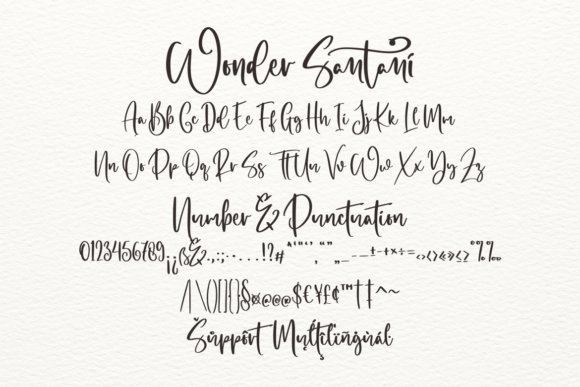 Wonder Santani
Aa Bb Cc Dd Ee Ff Gg Hh Ii Jj Kk Ll Mm
Nn Oo Pp Qq Rr Ss Tt Uu Vv Ww Xx Yy Zz
Number & Punctuation
0123456789¡¿ß&.,:;·…!?#
/\()[]{}§¤@©®$€¥£¢™†‡^~
Šůppôrt Mụľţĩlïñġùál